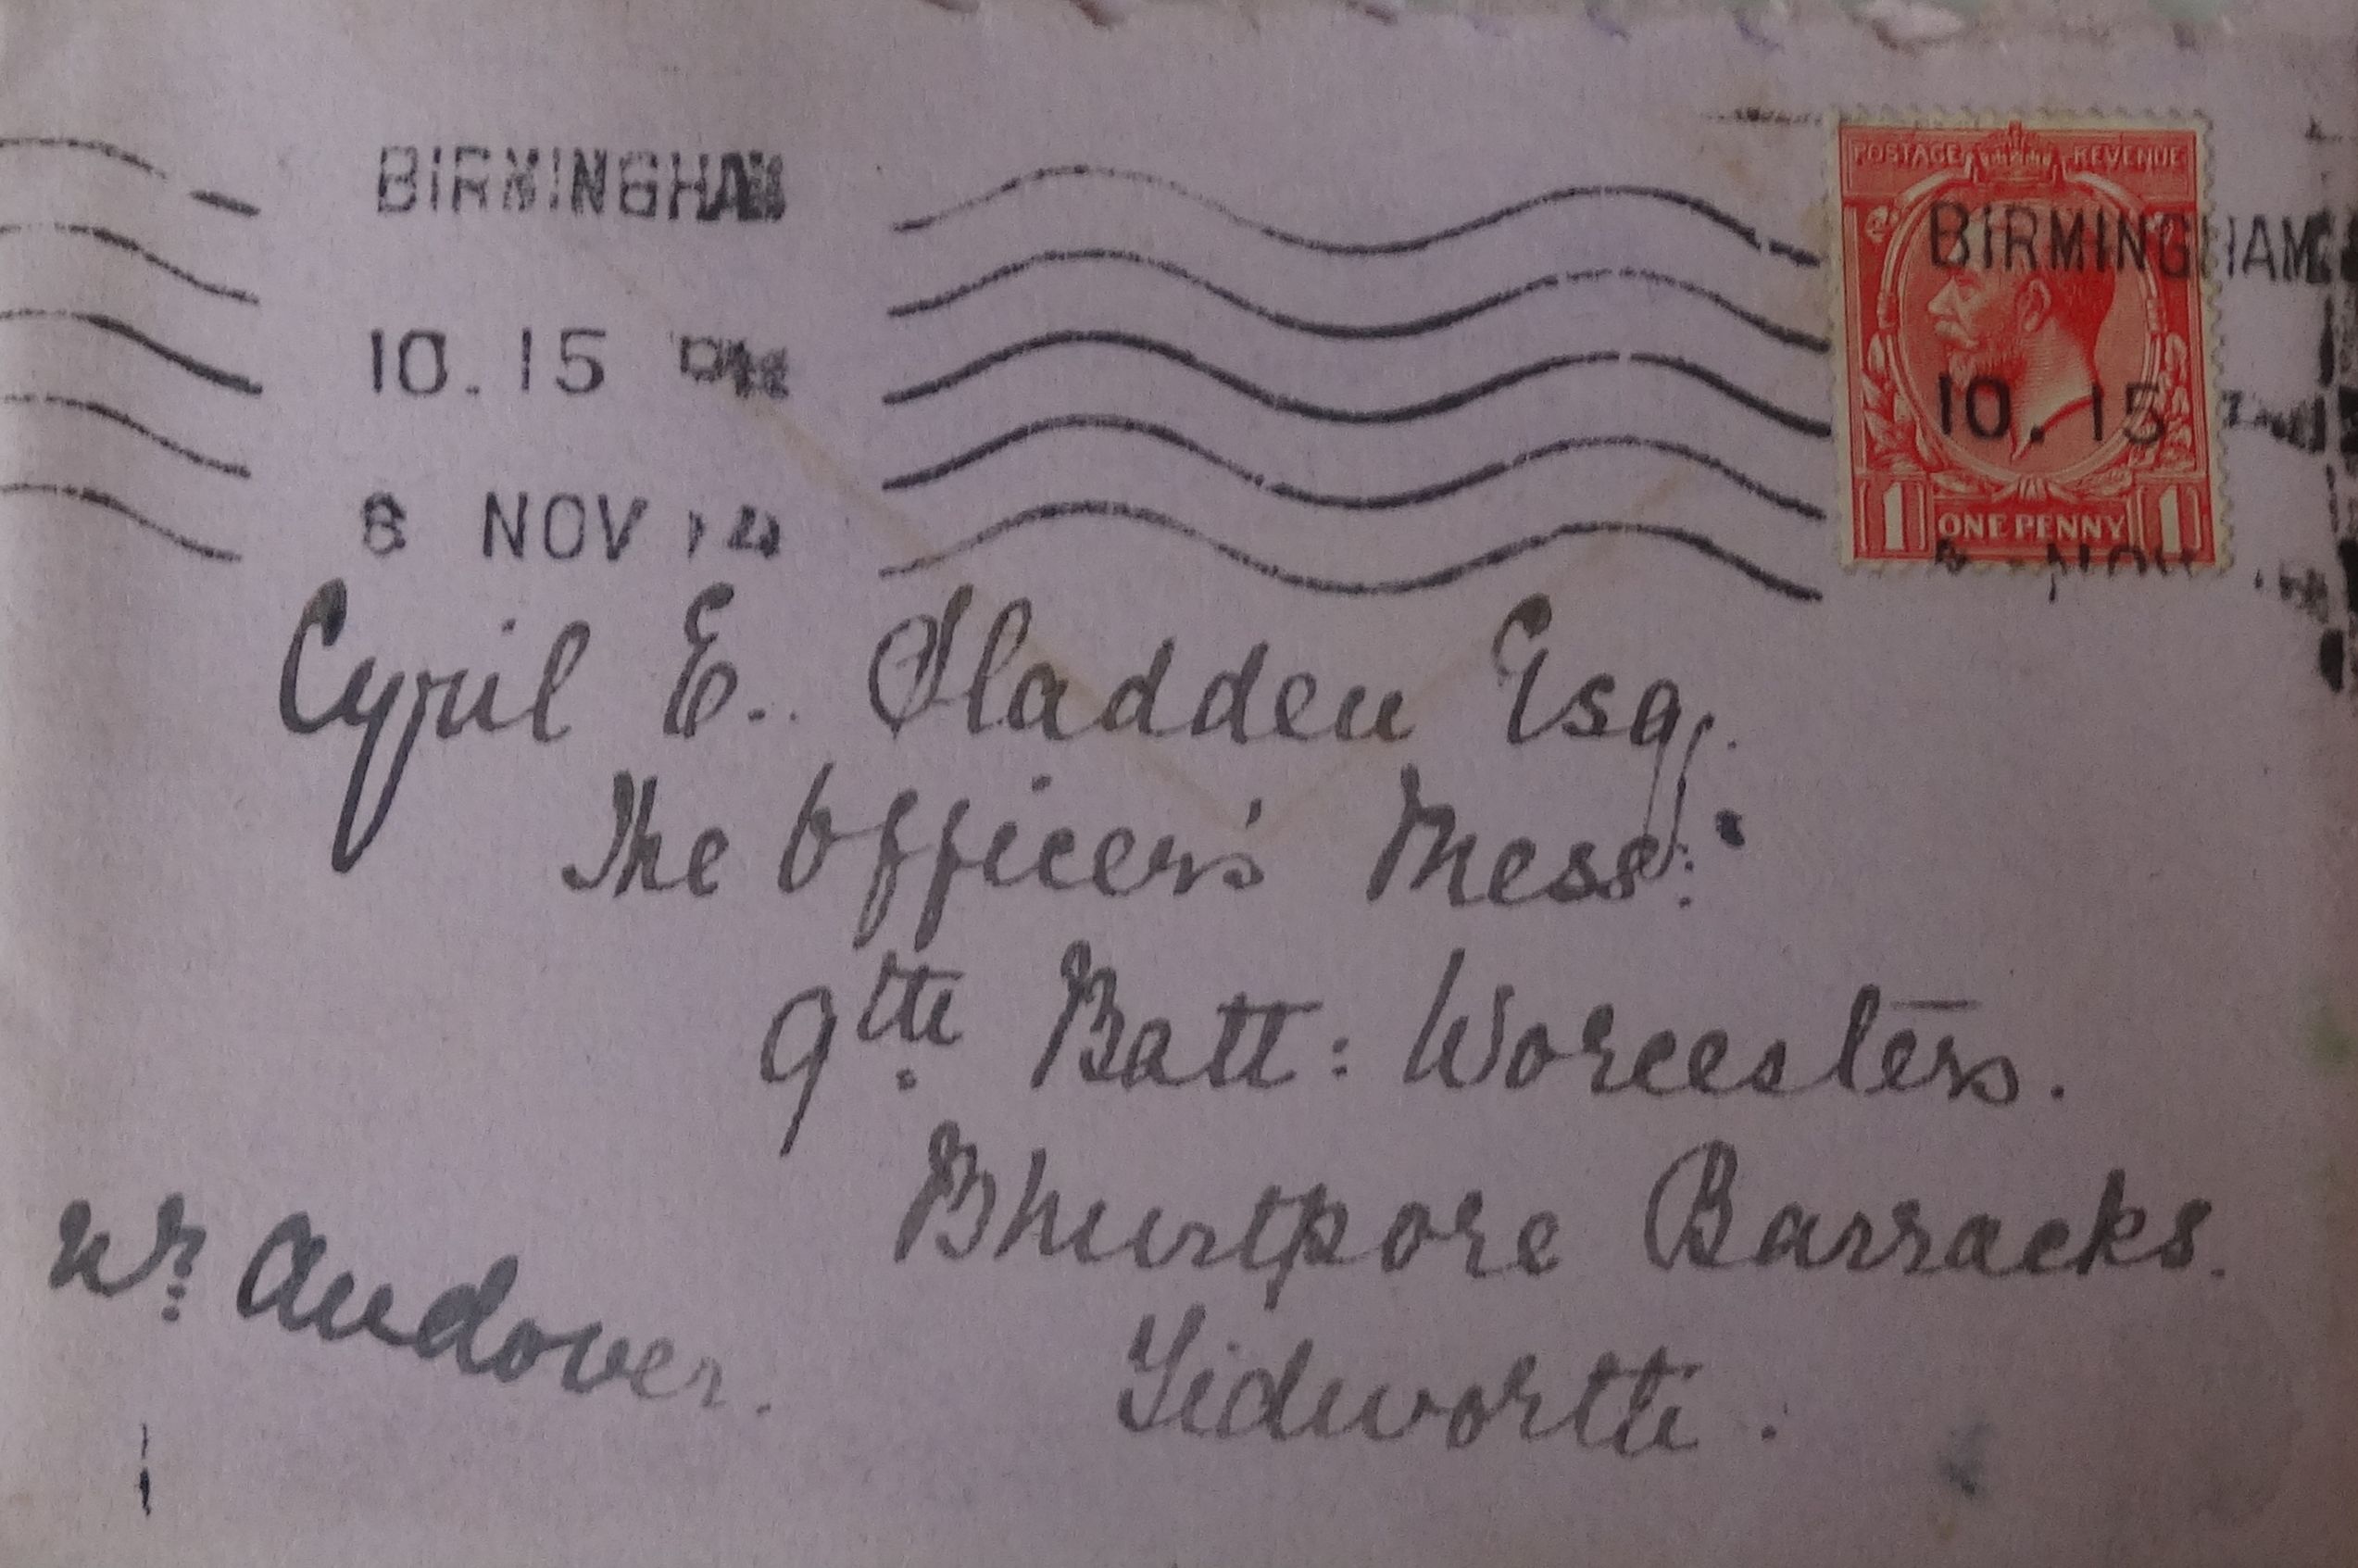 BIRMINGHAM
10. 15 PM
8 NOV 14
POSTAGE REVENUE
BIRMINGHAM
10. 15
1 ONE PENNY 1
NOV
Cyril E. Sladden Esq.
The Officer's Mess:
9th. Batt: Worcesters.
Bhurtpore Barracks.
Tidworth.
Nr. Andover.